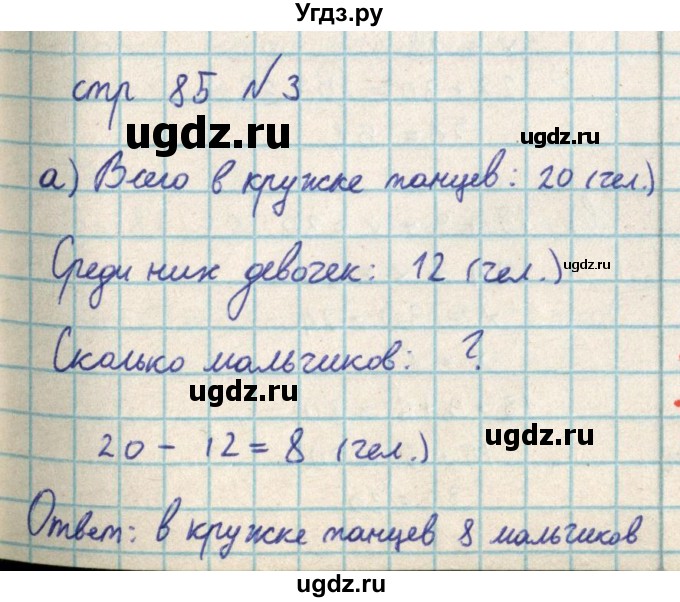 Угдз.ру
стр 85 №3
ugdz.ru
ugdz.ru
а) Всего в кружке танцев: 20 (чел.)
Среди них девочек: 12 (чел.)
ugdz.ru
Сколько мальчиков: ?
ugdz.ru
20 - 12 = 8 (чел.)
ugdz.ru
Ответ: в кружке танцев 8 мальчиков
ugdz.ru